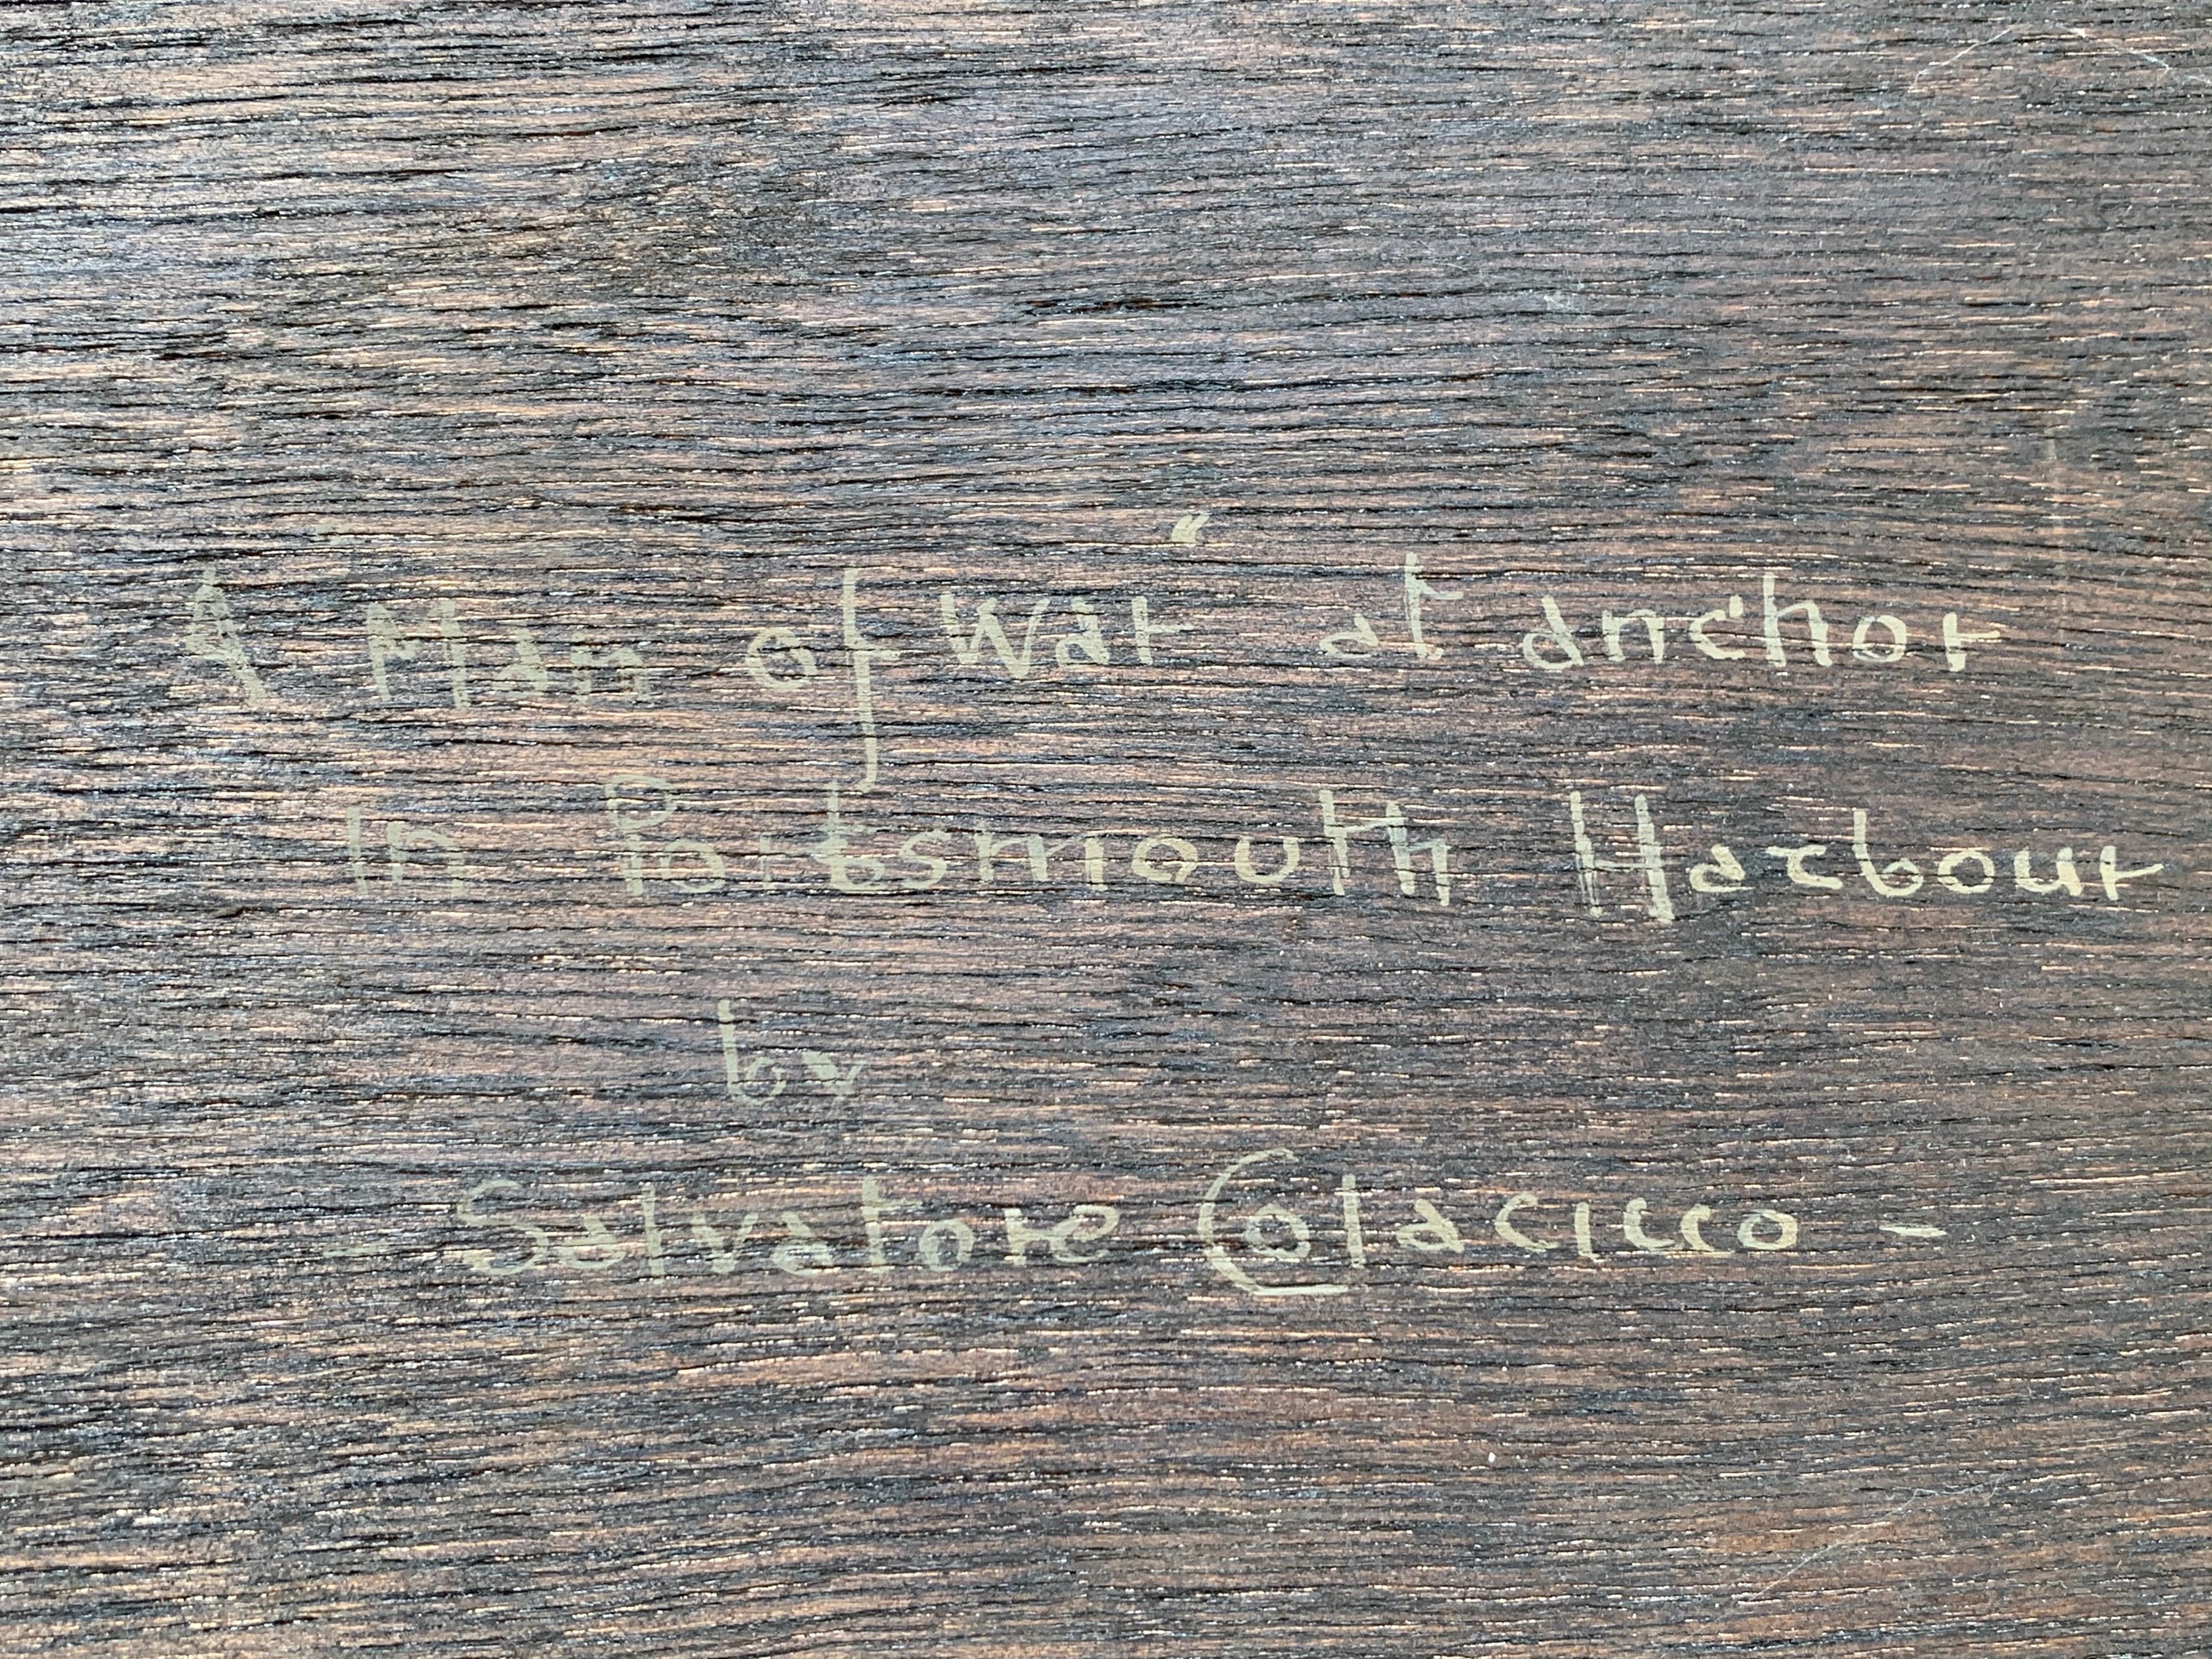 A Man of War" at anchor
in Portsmouth Harbour
by
- Salvatore Colacicco -